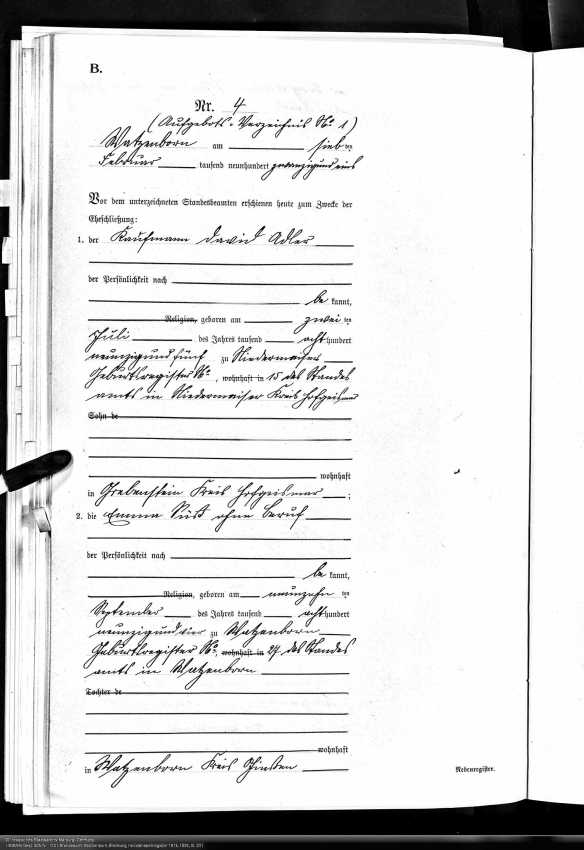 B.
Nr. 4
(Aufgebots-Verzeichnis No 1)
Watzenborn am siebten
Februar tausend neunhundert zwanzigundeins
Vor dem unterzeichneten Standesbeamten erschienen heute zum Zwecke der
Eheschließung:
1. der Kaufmann David Adler
der Persönlichkeit nach
be kannt,
Religion, geboren am zwei ten
Juli des Jahres tausend acht hundert
neunzigundfünf zu Niedermeiser
Geburtsregister No, wohnhaft in 15 des Standes
amts in Niedermeiser Kreis Hofgeismar
Sohn de
wohnhaft
in Grebenstein Kreis Hofgeismar ;
2. die Emma Süß ohne Beruf
der Persönlichkeit nach
be kannt,
Religion, geboren am neunzehn ten
September des Jahres tausend acht hundert
neunzigundvier zu Watzenborn
Geburtsregister No, wohnhaft in 27 des Standes
amts in Watzenborn
Tochter de
wohnhaft
in Watzenborn Kreis Gießen
Nebenregister.